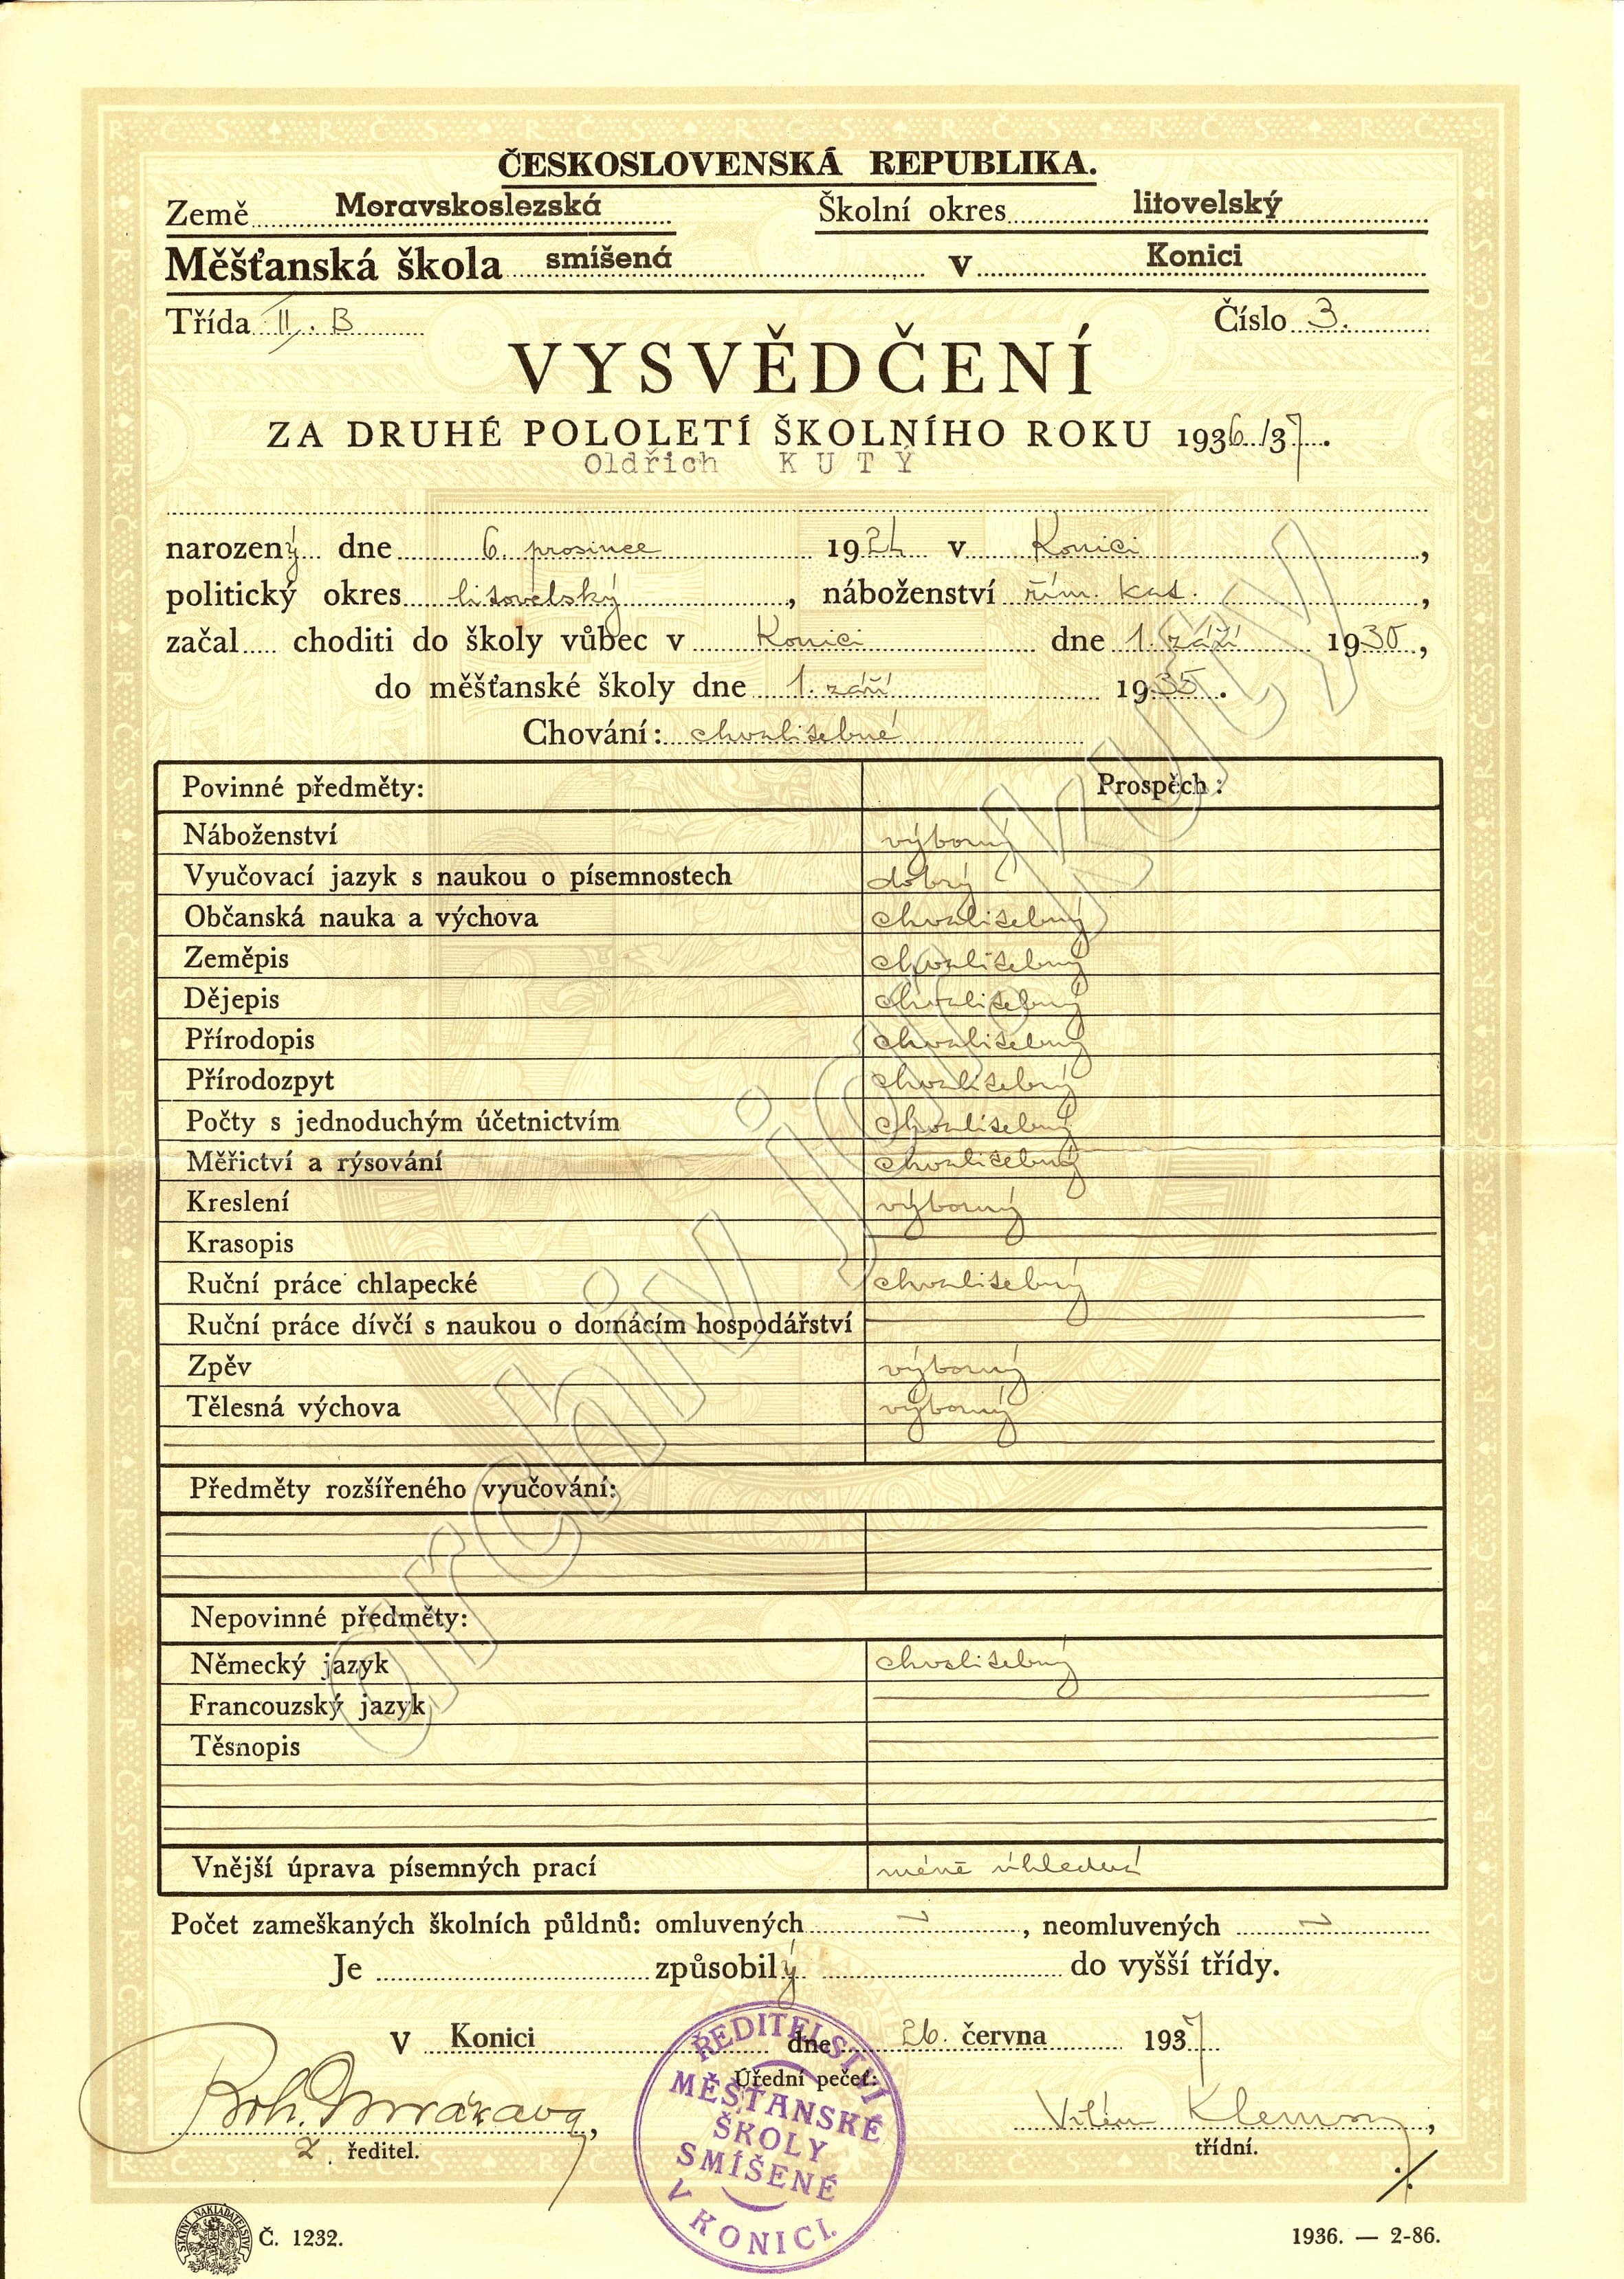 ČESKOSLOVENSKÁ REPUBLIKA.
Země Moravskoslezská Školní okres litovelský
Měšťanská škola smíšená v Konici
Třída II. B Číslo 3.
VYSVĚDČENÍ
ZA DRUHÉ POLOLETÍ ŠKOLNÍHO ROKU 1936/37.
Oldřich KUTÝ
narozený dne 6. prosince 1924 v Konici,
politický okres litovelský, náboženství řím. kat.,
začal choditi do školy vůbec v Konici dne 1. září 1930,
do měšťanské školy dne 1. září 1935.
Chování: chvalitebné
Povinné předměty: Prospěch:
Náboženství výborný
Vyučovací jazyk s naukou o písemnostech dobrý
Občanská nauka a výchova chvalitebný
Zeměpis chvalitebný
Dějepis chvalitebný
Přírodopis chvalitebný
Přírodozpyt chvalitebný
Počty s jednoduchým účetnictvím chvalitebný
Měřictví a rýsování chvalitebný
Kreslení výborný
Krasopis
Ruční práce chlapecké chvalitebný
Ruční práce dívčí s naukou o domácím hospodářství
Zpěv výborný
Tělesná výchova výborný
Předměty rozšířeného vyučování:
Nepovinné předměty:
Německý jazyk chvalitebný
Francouzský jazyk
Těsnopis
Vnější úprava písemných prací méně úhledná
Počet zameškaných školních půldnů: omluvených –, neomluvených –
Je způsobilý do vyšší třídy.
V Konici dne 26. června 1937
Úřední pečeť:
ŘEDITELSTVÍ
MĚŠŤANSKÉ
ŠKOLY
SMÍŠENÉ
V KONICI.
Boh.
z. ředitel.
Vilém
třídní.
STÁTNÍ NAKLADATELSTVÍ
Č. 1232.
1936. — 2-86.
archiv jdk kutý